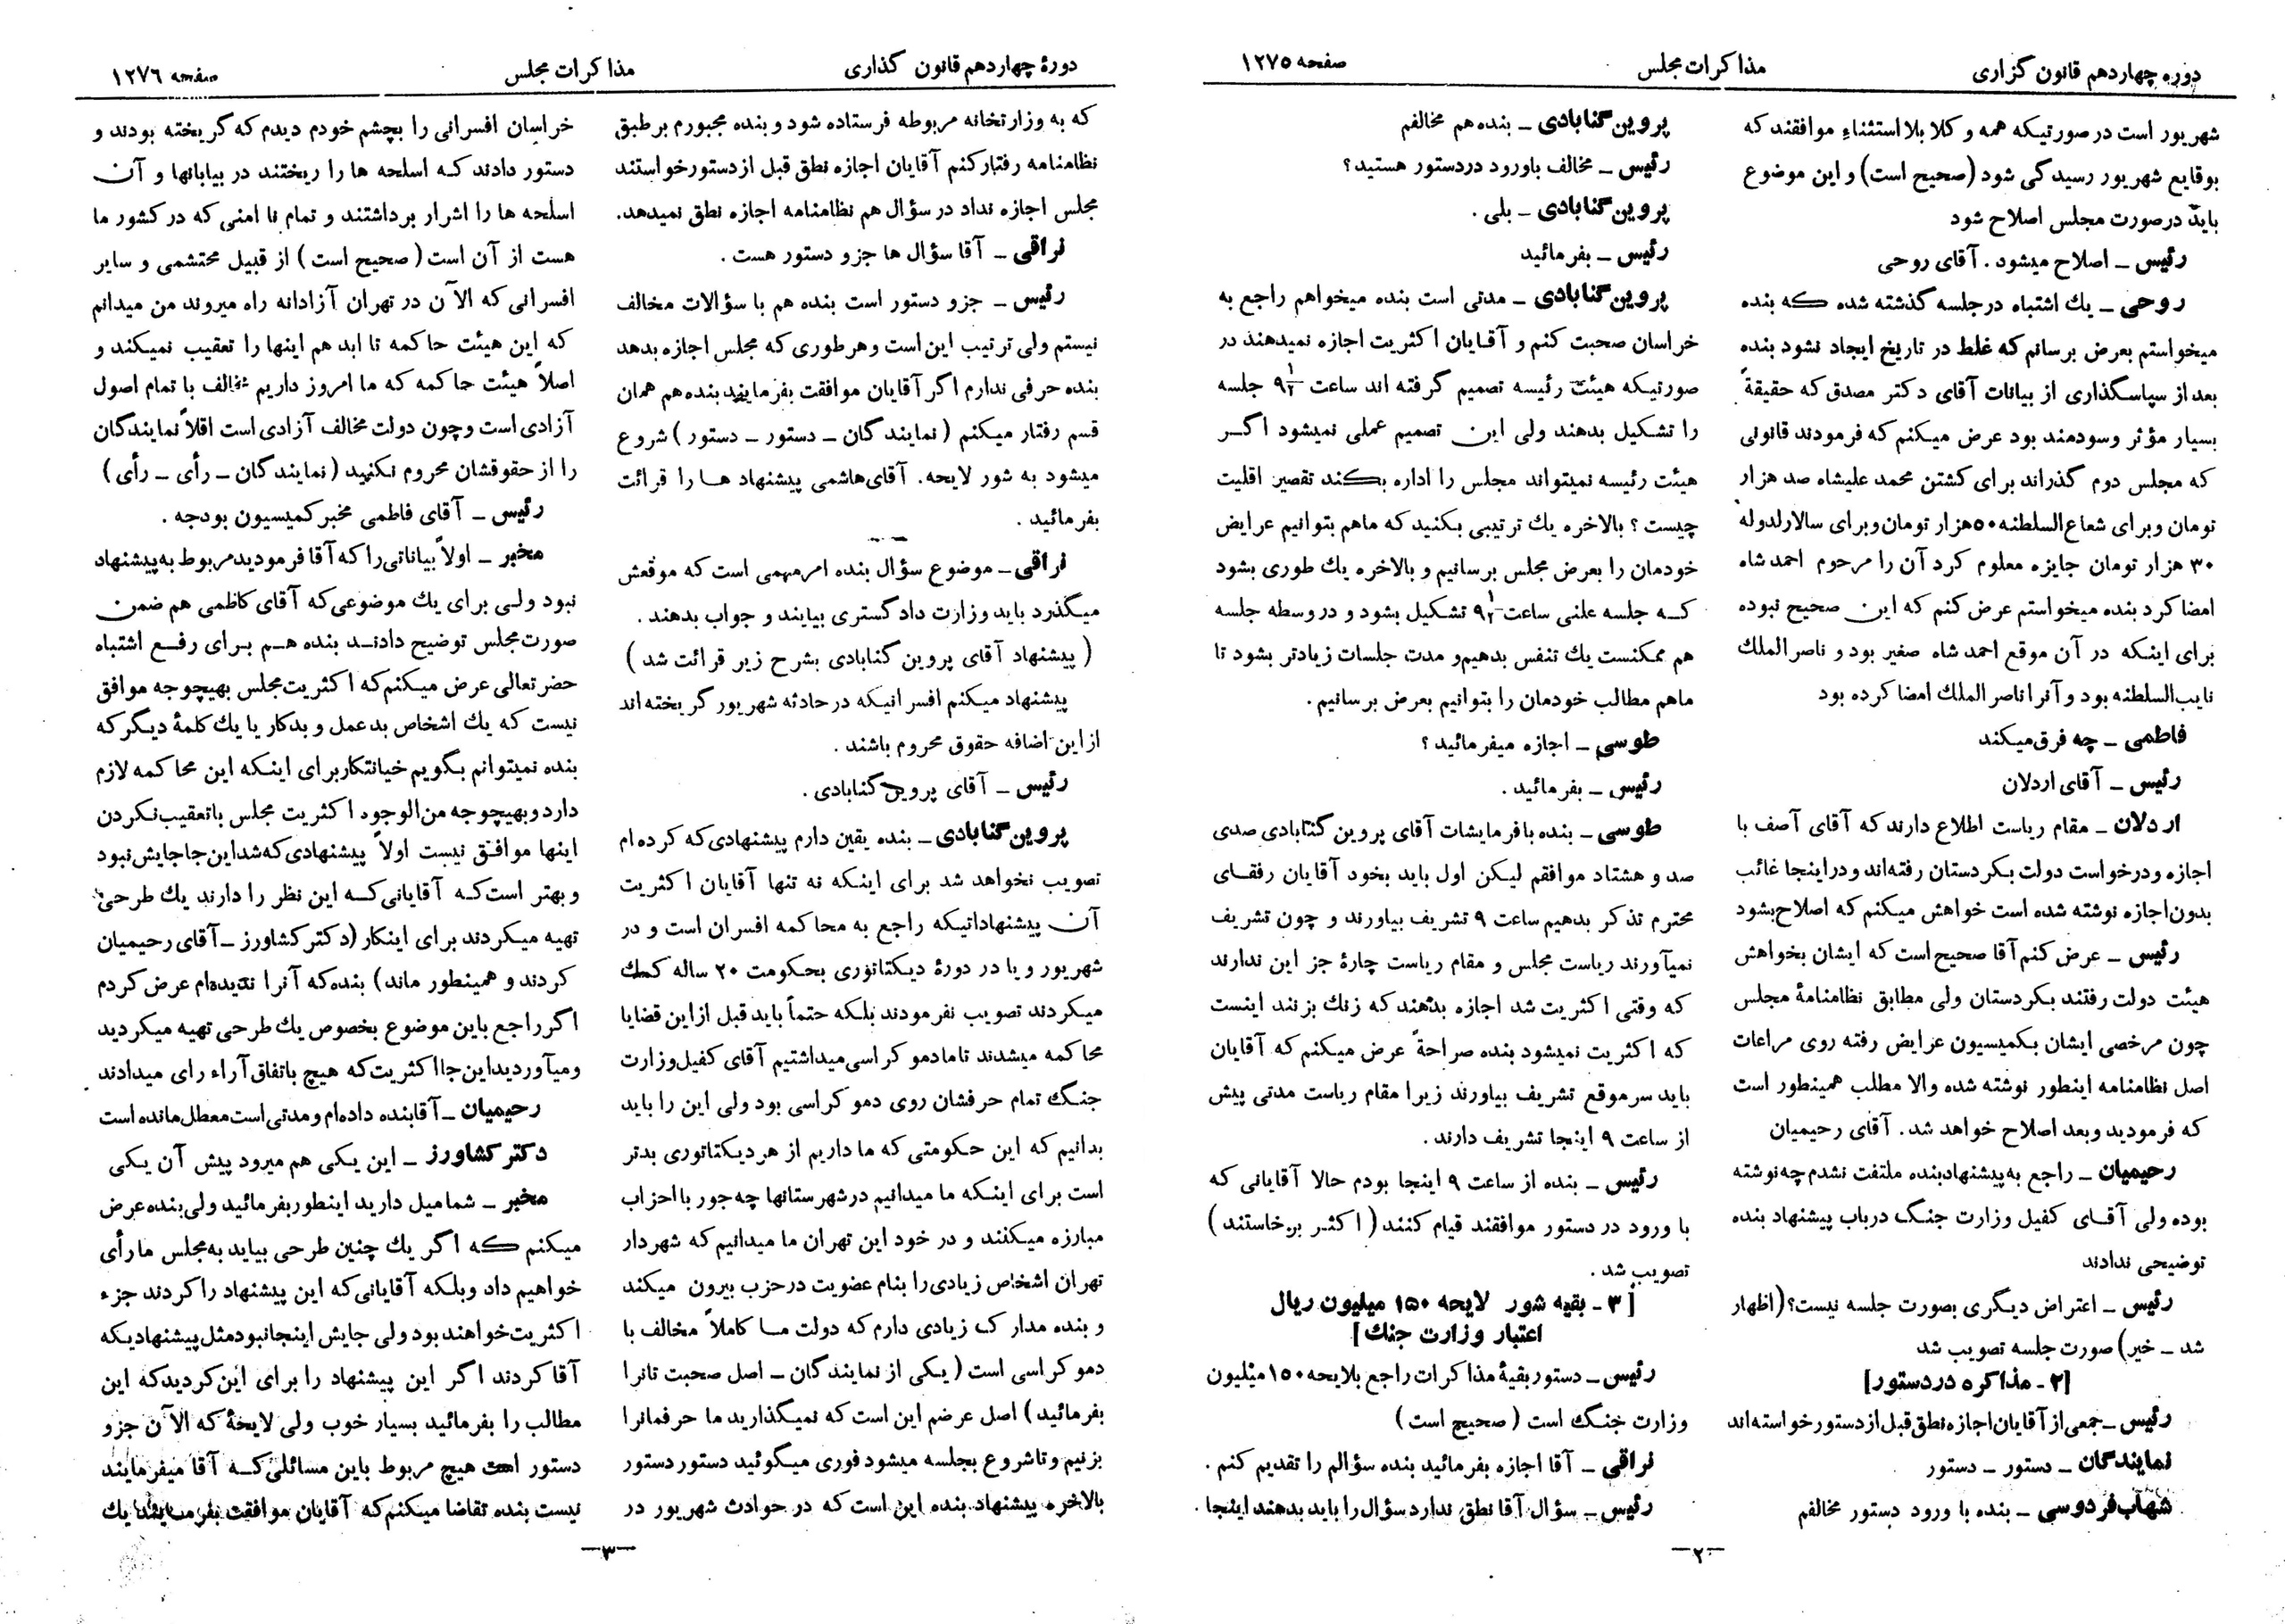 دوره چهاردهم قانون گزاری
مذاکرات مجلس
صفحه ۱۲۷۵
شهریور است در صورتیکه همه وکلا بلااستثناء موافقند که
بوقایع شهریور رسیدگی شود (صحیح است) و این موضوع
باید درصورت مجلس اصلاح شود
رئیس ــ اصلاح میشود . آقای روحی
روحی ــ یك اشتباه درجلسه گذشته شده که بنده
میخواستم بعرض برسانم که غلط در تاریخ ایجاد نشود بنده
بعد از سپاسگذاری از بیانات آقای دکتر مصدق که حقیقةً
بسیار مؤثر وسودمند بود عرض میکنم که فرمودند قانونی
که مجلس دوم گذراند برای کشتن محمد علیشاه صد هزار
تومان وبرای شعاع السلطنه ۵۰هزار تومان وبرای سالارلدوله
۳۰ هزار تومان جایزه معلوم کرد آن را مرحوم احمد شاه
امضا کرد بنده میخواستم عرض کنم که این صحیح نبوده
برای اینکه در آن موقع احمد شاه صغیر بود و ناصرالملك
نایب السلطنه بود و آنرا ناصر الملك امضا کرده بود
فاطمی ــ چه فرق میکند
رئیس ــ آقای اردلان
اردلان ــ مقام ریاست اطلاع دارند که آقای آصف با
اجازه ودرخواست دولت بکردستان رفته‌اند ودراینجا غائب
بدون اجازه نوشته شده است خواهش میکنم که اصلاح بشود
رئیس ــ عرض کنم آقا صحیح است که ایشان بخواهش
هیئت دولت رفتند بکردستان ولی مطابق نظامنامهٔ مجلس
چون مرخصی ایشان بکمیسیون عرایض رفته روی مراعات
اصل نظامنامه اینطور نوشته شده والا مطلب همینطور است
که فرمودید وبعد اصلاح خواهد شد . آقای رحیمیان
رحیمیان ــ راجع به پیشنهاد بنده ملتفت نشدم چه نوشته
بوده ولی آقای کفیل وزارت جنگ درباب پیشنهاد بنده
توضیحی ندادند
رئیس ــ اعتراض دیگری بصورت جلسه نیست؟ (اظهار
شد ــ خیر) صورت جلسه تصویب شد
[۲ ـ مذاکره دردستور]
رئیس ــ جمعی از آقایان اجازه نطق قبل از دستور خواسته‌اند
نمایندگان ــ دستور ــ دستور
شهاب فردوسی ــ بنده با ورود دستور مخالفم
پروین گنابادی ــ بنده هم مخالفم
رئیس ــ مخالف باورود دردستور هستید؟
پروین گنابادی ــ بلی .
رئیس ــ بفرمائید
پروین گنابادی ــ مدتی است بنده میخواهم راجع به
خراسان صحبت کنم و آقایان اکثریت اجازه نمیدهند در
صورتیکه هیئت رئیسه تصمیم گرفته اند ساعت ۹½ جلسه
را تشکیل بدهند ولی این تصمیم عملی نمیشود اگر
هیئت رئیسه نمیتواند مجلس را اداره بکند تقصیر اقلیت
چیست ؟ بالاخره یك ترتیبی بکنید که ماهم بتوانیم عرایض
خودمان را بعرض مجلس برسانیم و بالاخره یك طوری بشود
که جلسه علنی ساعت ۹½ تشکیل بشود و دروسطه جلسه
هم ممکنست یك تنفس بدهیم و مدت جلسات زیادتر بشود تا
ماهم مطالب خودمان را بتوانیم بعرض برسانیم .
طوسی ــ اجازه میفرمائید ؟
رئیس ــ بفرمائید .
طوسی ــ بنده بافرمایشات آقای پروین گنابادی صدی
صد و هشتاد موافقم لیکن اول باید بخود آقایان رفقای
محترم تذکر بدهیم ساعت ۹ تشریف بیاورند و چون تشریف
نمیآورند ریاست مجلس و مقام ریاست چارهٔ جز این ندارند
که وقتی اکثریت شد اجازه بدهند که زنك بزنند اینست
که اکثریت نمیشود بنده صراحةً عرض میکنم که آقایان
باید سرموقع تشریف بیاورند زیرا مقام ریاست مدتی پیش
از ساعت ۹ اینجا تشریف دارند .
رئیس ــ بنده از ساعت ۹ اینجا بودم حالا آقایانی که
با ورود در دستور موافقند قیام کنند (اکثر برخاستند)
تصویب شد .
[۳ ـ بقیه شور لایحه ۱۵۰ میلیون ریال
اعتبار وزارت جنك]
رئیس ــ دستور بقیهٔ مذاکرات راجع بلایحه ۱۵۰ میلیون
وزارت جنگ است (صحیح است)
نراقی ــ آقا اجازه بفرمائید بنده سؤالم را تقدیم کنم .
رئیس ــ سؤال آقا نطق ندارد سؤال را باید بدهند اینجا .
ــ۲ــ
دورهٔ چهاردهم قانون گذاری
مذاکرات مجلس
صفحه ۱۲۷۶
که به وزارتخانه مربوطه فرستاده شود و بنده مجبورم برطبق
نظامنامه رفتار کنم آقایان اجازه نطق قبل از دستور خواستند
مجلس اجازه نداد در سؤال هم نظامنامه اجازه نطق نمیدهد.
نراقی ــ آقا سؤال ها جزو دستور هست .
رئیس ــ جزو دستور است بنده هم با سؤالات مخالف
نیستم ولی ترتیب این است وهرطوری که مجلس اجازه بدهد
بنده حرفی ندارم اگر آقایان موافقت بفرمایند بنده هم همان
قسم رفتار میکنم (نمایندگان ــ دستور ــ دستور) شروع
میشود به شور لایحه. آقای هاشمی پیشنهاد ها را قرائت
بفرمائید .
نراقی ــ موضوع سؤال بنده امر مهمی است که موقعش
میگذرد باید وزارت دادگستری بیایند و جواب بدهند .
( پیشنهاد آقای پروین گنابادی بشرح زیر قرائت شد )
پیشنهاد میکنم افسرانیکه درحادثه شهریور گریخته اند
از این اضافه حقوق محروم باشند .
رئیس ــ آقای پروین گنابادی .
پروین گنابادی ــ بنده یقین دارم پیشنهادی که کرده ام
تصویب نخواهد شد برای اینکه نه تنها آقایان اکثریت
آن پیشنهاداتیکه راجع به محاکمه افسران است و در
شهریور و یا در دورهٔ دیکتاتوری بحکومت ۲۰ ساله کمك
میکردند تصویب نفرمودند بلکه حتماً باید قبل از این قضایا
محاکمه میشدند تامادمو کراسی میداشتیم آقای کفیل وزارت
جنگ تمام حرفشان روی دموکراسی بود ولی این را باید
بدانیم که این حکومتی که ما داریم از هر دیکتاتوری بدتر
است برای اینکه ما میدانیم درشهرستانها چه جور با احزاب
مبارزه میکنند و در خود این تهران ما میدانیم که شهردار
تهران اشخاص زیادی را بنام عضویت درحزب بیرون میکند
و بنده مدارک زیادی دارم که دولت ما کاملاً مخالف با
دموکراسی است (یکی از نمایندگان ــ اصل صحبت تانرا
بفرمائید) اصل عرضم این است که نمیگذارید ما حرفمانرا
بزنیم وتا شروع بجلسه میشود فوری میگوئید دستور دستور
بالاخره پیشنهاد بنده این است که در حوادث شهریور در
خراسان افسرانی را بچشم خودم دیدم که گریخته بودند و
دستور دادند که اسلحه ها را ریختند در بیابانها و آن
اسلحه ها را اشرار برداشتند و تمام نا امنی که در کشور ما
هست از آن است (صحیح است) از قبیل محتشمی و سایر
افسرانی که الآن در تهران آزادانه راه میروند من میدانم
که این هیئت حاکمه تا ابد هم اینها را تعقیب نمیکند و
اصلاً هیئت حاکمه که ما امروز داریم مخالف با تمام اصول
آزادی است وچون دولت مخالف آزادی است اقلاً نمایندگان
را از حقوقشان محروم نکنید (نمایندگان ــ رأی ــ رأی)
رئیس ــ آقای فاطمی مخبر کمیسیون بودجه .
مخبر ــ اولاً بیاناتی را که آقا فرمودید مربوط به پیشنهاد
نبود ولی برای یك موضوعی که آقای کاظمی هم ضمن
صورت مجلس توضیح دادند بنده هم برای رفع اشتباه
حضرتعالی عرض میکنم که اکثریت مجلس بهیچوجه موافق
نیست که یك اشخاص بدعمل و بدکار یا یك کلمهٔ دیگر که
بنده نمیتوانم بگویم خیانتکار برای اینکه این محاکمه لازم
دارد وبهیچوجه من الوجوه اکثریت مجلس باتعقیب نکردن
اینها موافق نیست اولاً پیشنهادی که شد این جا جایش نبود
و بهتر است که آقایانی که این نظر را دارند یك طرحی
تهیه میکردند برای اینکار (دکتر کشاورز ــ آقای رحیمیان
کردند و همینطور ماند) بنده که آنرا ندیده‌ام عرض کردم
اگر راجع باین موضوع بخصوص یك طرحی تهیه میکردید
ومیآوردید این جا اکثریت که هیچ باتفاق آراء رای میدادند
رحیمیان ــ آقا بنده داده‌ام ومدتی است معطل مانده است
دکتر کشاورز ــ این یکی هم میرود پیش آن یکی
مخبر ــ شما میل دارید اینطور بفرمائید ولی بنده عرض
میکنم که اگر یك چنین طرحی بیاید به مجلس ما رأی
خواهیم داد وبلکه آقایانی که این پیشنهاد را کردند جزء
اکثریت خواهند بود ولی جایش اینجا نبود مثل پیشنهادیکه
آقا کردند اگر این پیشنهاد را برای این کردید که این
مطالب را بفرمائید بسیار خوب ولی لایحهٔ که الآن جزو
دستور است هیچ مربوط باین مسائلی که آقا میفرمایند
نیست بنده تقاضا میکنم که آقایان موافقت بفرمایند یك
ــ۳ــ